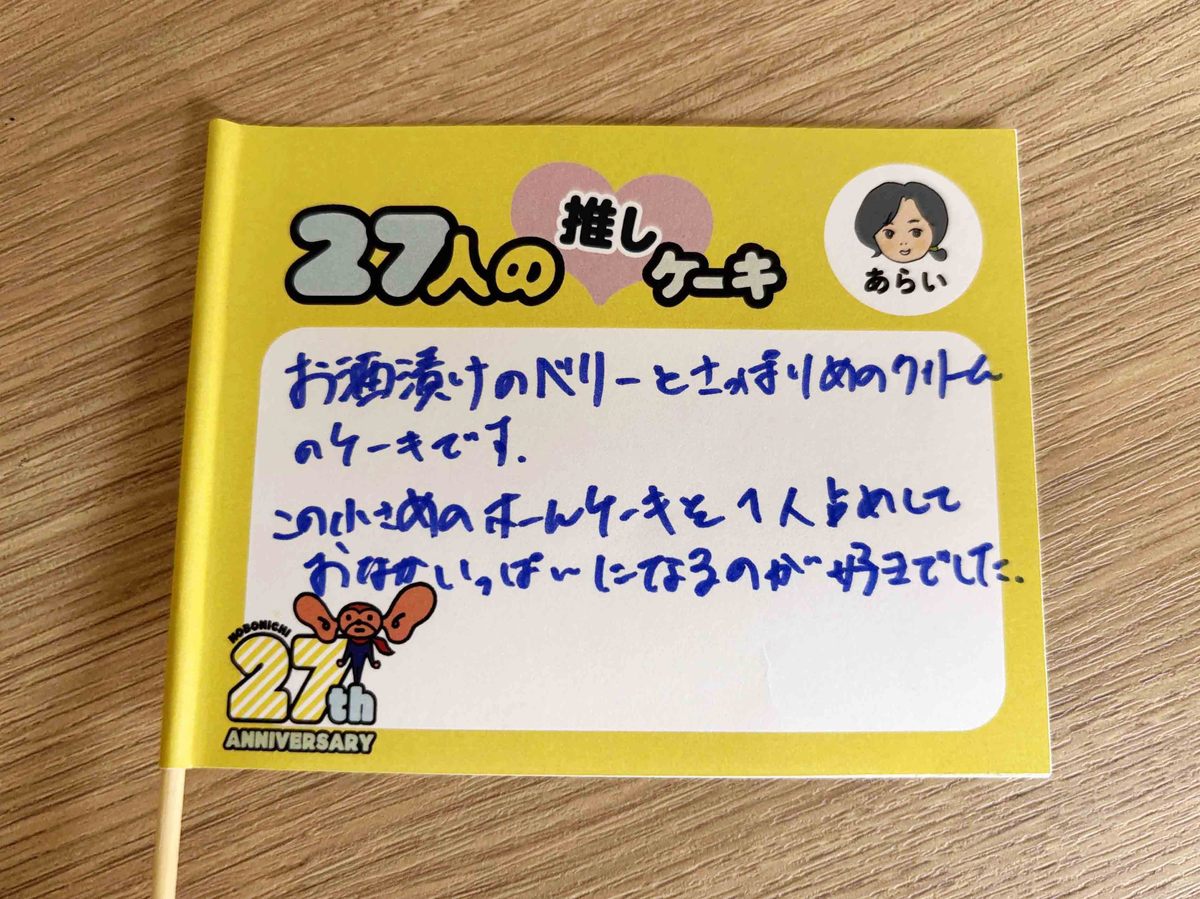 27人の推しケーキ
あらい
お酒漬けのベリーとさっぱりめのクリーム
のケーキです.
この小さめのホールケーキを1人占めして
おなかいっぱいになるのが好きでした.
HOBONICHI
27th
ANNIVERSARY